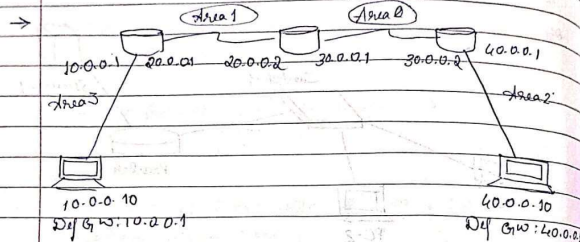 → Area 1 Area 0
10.0.0.1 20.0.01 20.0.0.2 30.0.0.1 30.0.0.2 40.0.0.1
Area3 Area2
10.0.0.10 40.0.0.10
Def GW: 10.0.0.1 Def GW: 40.0.0.